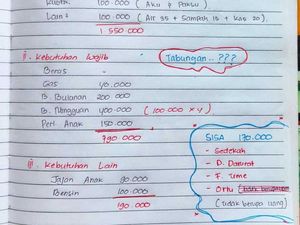 Kuota 100.000 (Aku & Paksu)
Lain² 100.000 (Air 35 + Sampah 15 + Kas 20)
1.550.000
II. Kebutuhan Wajib
Tabungan..???
Beras -
Gas 40.000
B. Bulanan 200.000
B. Mingguan 400.000 (100.000 x 4)
Peri Anak 150.000
790.000
SISA 170.000
- Sedekah
- D. Darurat
- F. Time
- Ortu
(tidak berupa uang)
III. Kebutuhan Lain
Jajan Anak 90.000
Bensin 100.000
190.000